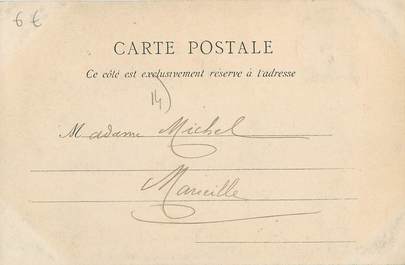 6 €
CARTE POSTALE
Ce côté est exclusivement réservé à l'adresse
14)
Madame Michel
Marseille